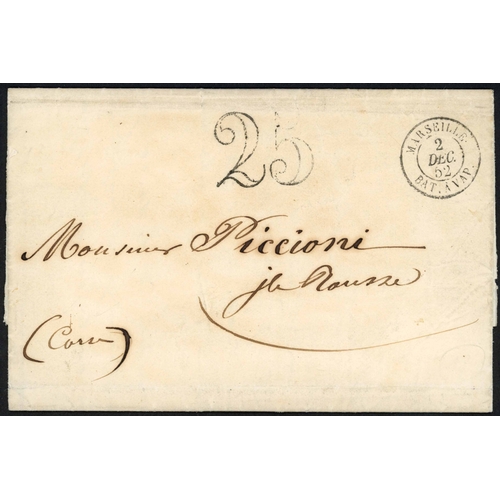 25
MARSEILLE
2
DEC.
52
BAT. A VAP.
Monsieur Piccioni
ile Rousse
(Corse)